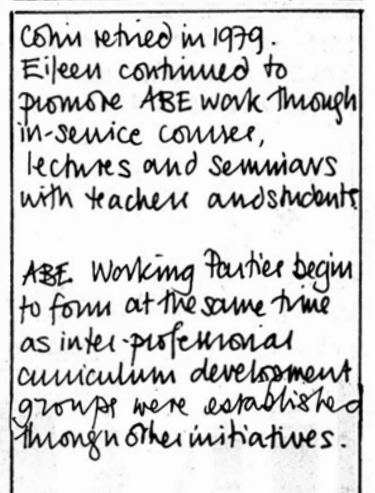 Colin retired in 1979.
Eileen continued to
promote ABE work through
in-service courses,
lectures and seminars
with teachers and students.
ABE Working Parties begin
to form at the same time
as inter-professional
curriculum development
groups were established
through other initiatives.